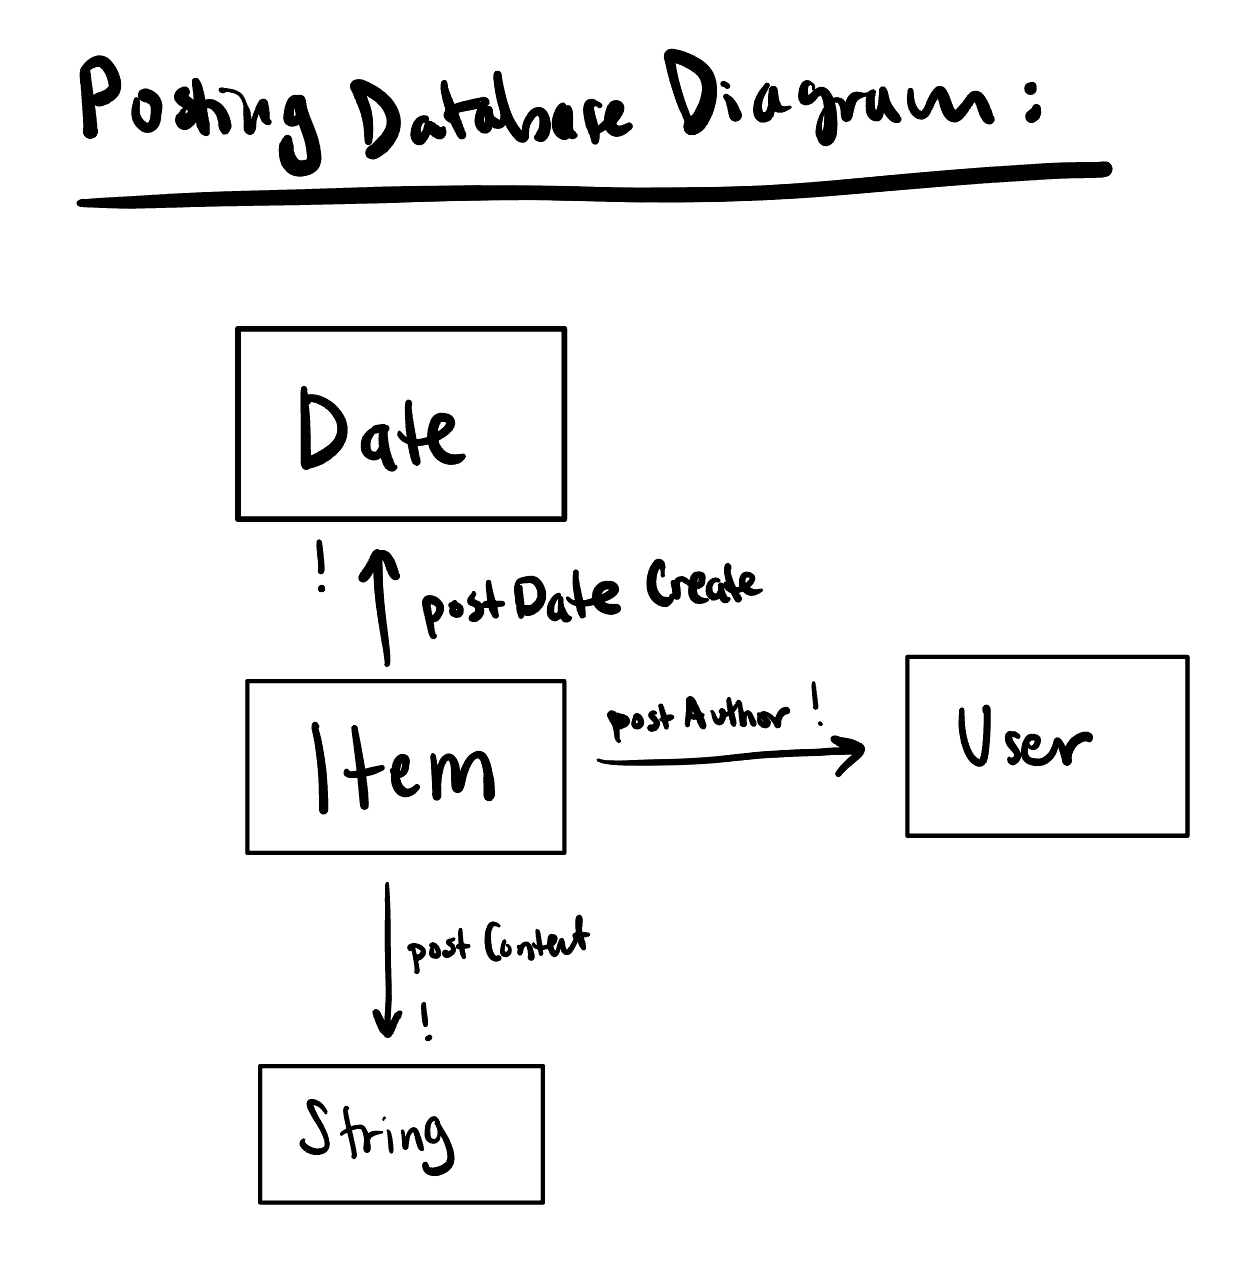 Posting Database Diagram:
Date
!
postDate Create
Item
postAuthor !
User
post Content
!
String